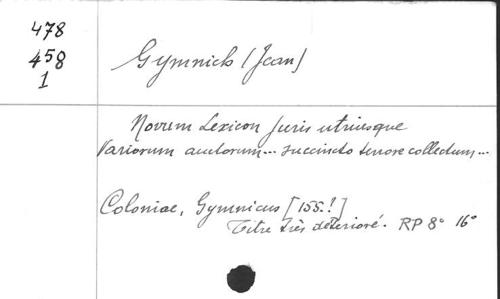 478
458
1
Gymnich (Jean)
Novum Lexicon Juris utriusque
Variorum auctorum... succincto tenore collectum...
Coloniae, Gymnicus [155.!]
Titre très déterioré. RP 8° 16°